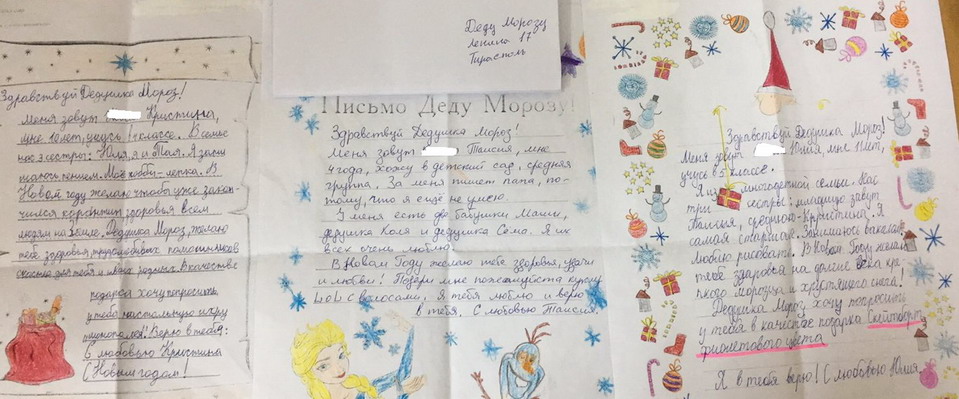 Деду Морозу
Ленина 17
Тирасполь
Здравствуй Дедушка Мороз!
Меня зовут Кристина,
мне 10 лет, учусь классе. В семье
нас 3 сестры: Юля, я и Тая. Я зани
маюсь пением. Моё хобби - лепка. В
Новом году желаю чтобы уже закон-
чился коронавирус, здоровья всем
людям на земле. Дедушка Мороз, желаю
тебе здоровья, трудолюбивых помощников
для тебя и твоих родных. В качестве
подарка хочу попросить
у тебя настольную игру
Верю в тебя!
С любовью Кристина
С Новым годом!
Письмо Деду Морозу!
Здравствуй Дедушка Мороз!
Меня зовут Таисия, мне
4 года, хожу в детский сад, средняя
группа. За меня пишет папа, по-
тому, что я ещё не умею.
У меня есть две бабушки Маши,
дедушка Коля и дедушка Сёма. Я их
всех очень люблю.
В Новом Году желаю тебе здоровья, удачи
и любви! Подари мне пожалуйста куклу
LOL с волосами. Я тебя люблю и верю
в тебя. С любовью Таисия.
Здравствуй Дедушка Мороз!
Меня зовут Юлия, мне 11 лет,
учусь в 5 классе.
Я из многодетной семьи. Нас
три сестры: младшую зовут
Таисия, среднюю - Кристина. Я
самая старшая. Занимаюсь вокалом,
люблю рисовать. В Новом Году желаю
тебе здоровья на долгие века, кре-
пкого морозца и хрустящего снега!
Дедушка Мороз, хочу попросить
у тебя в качестве подарка Скейтборд
фиолетового цвета
Я в тебя верю! С любовью Юлия